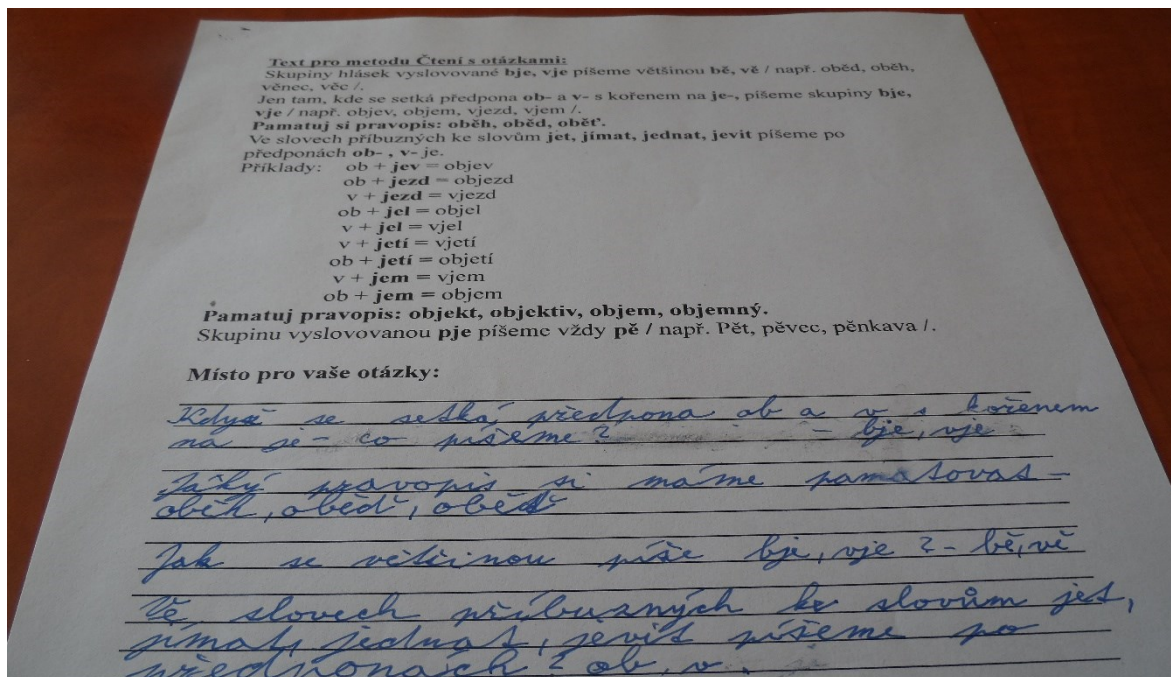 Text pro metodu Čtení s otázkami:
Skupiny hlásek vyslovované bje, vje píšeme většinou bě, vě / např. oběd, oběh,
věnec, věc /.
Jen tam, kde se setká předpona ob- a v- s kořenem na je-, píšeme skupiny bje,
vje / např. objev, objem, vjezd, vjem /.
Pamatuj si pravopis: oběh, oběd, oběť.
Ve slovech příbuzných ke slovům jet, jímat, jednat, jevit píšeme po
předponách ob- , v- je.
Příklady: ob + jev = objev
ob + jezd = objezd
v + jezd = vjezd
ob + jel = objel
v + jel = vjel
v + jetí = vjetí
ob + jetí = objetí
v + jem = vjem
ob + jem = objem
Pamatuj pravopis: objekt, objektiv, objem, objemný.
Skupinu vyslovovanou pje píšeme vždy pě / např. Pět, pěvec, pěnkava /.
Místo pro vaše otázky:
Když se setká předpona ob a v s kořenem
na je- co píšeme? - bje, vje
Jaký pravopis si máme pamatovat -
oběh, oběd, oběť
Jak se většinou píše bje, vje? - bě, vě
Ve slovech příbuzných ke slovům jet,
jímat, jednat, jevit píšeme po
předponách? ob, v.